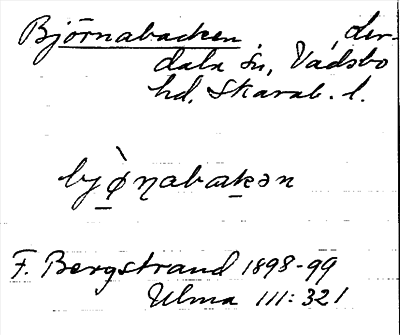 Björnabacken, der-
dala sn, Vadsbo
hd, Skarab. l.
bjø̀ŋabakən
F. Bergstrand 1898-99
Ulma 111: 321